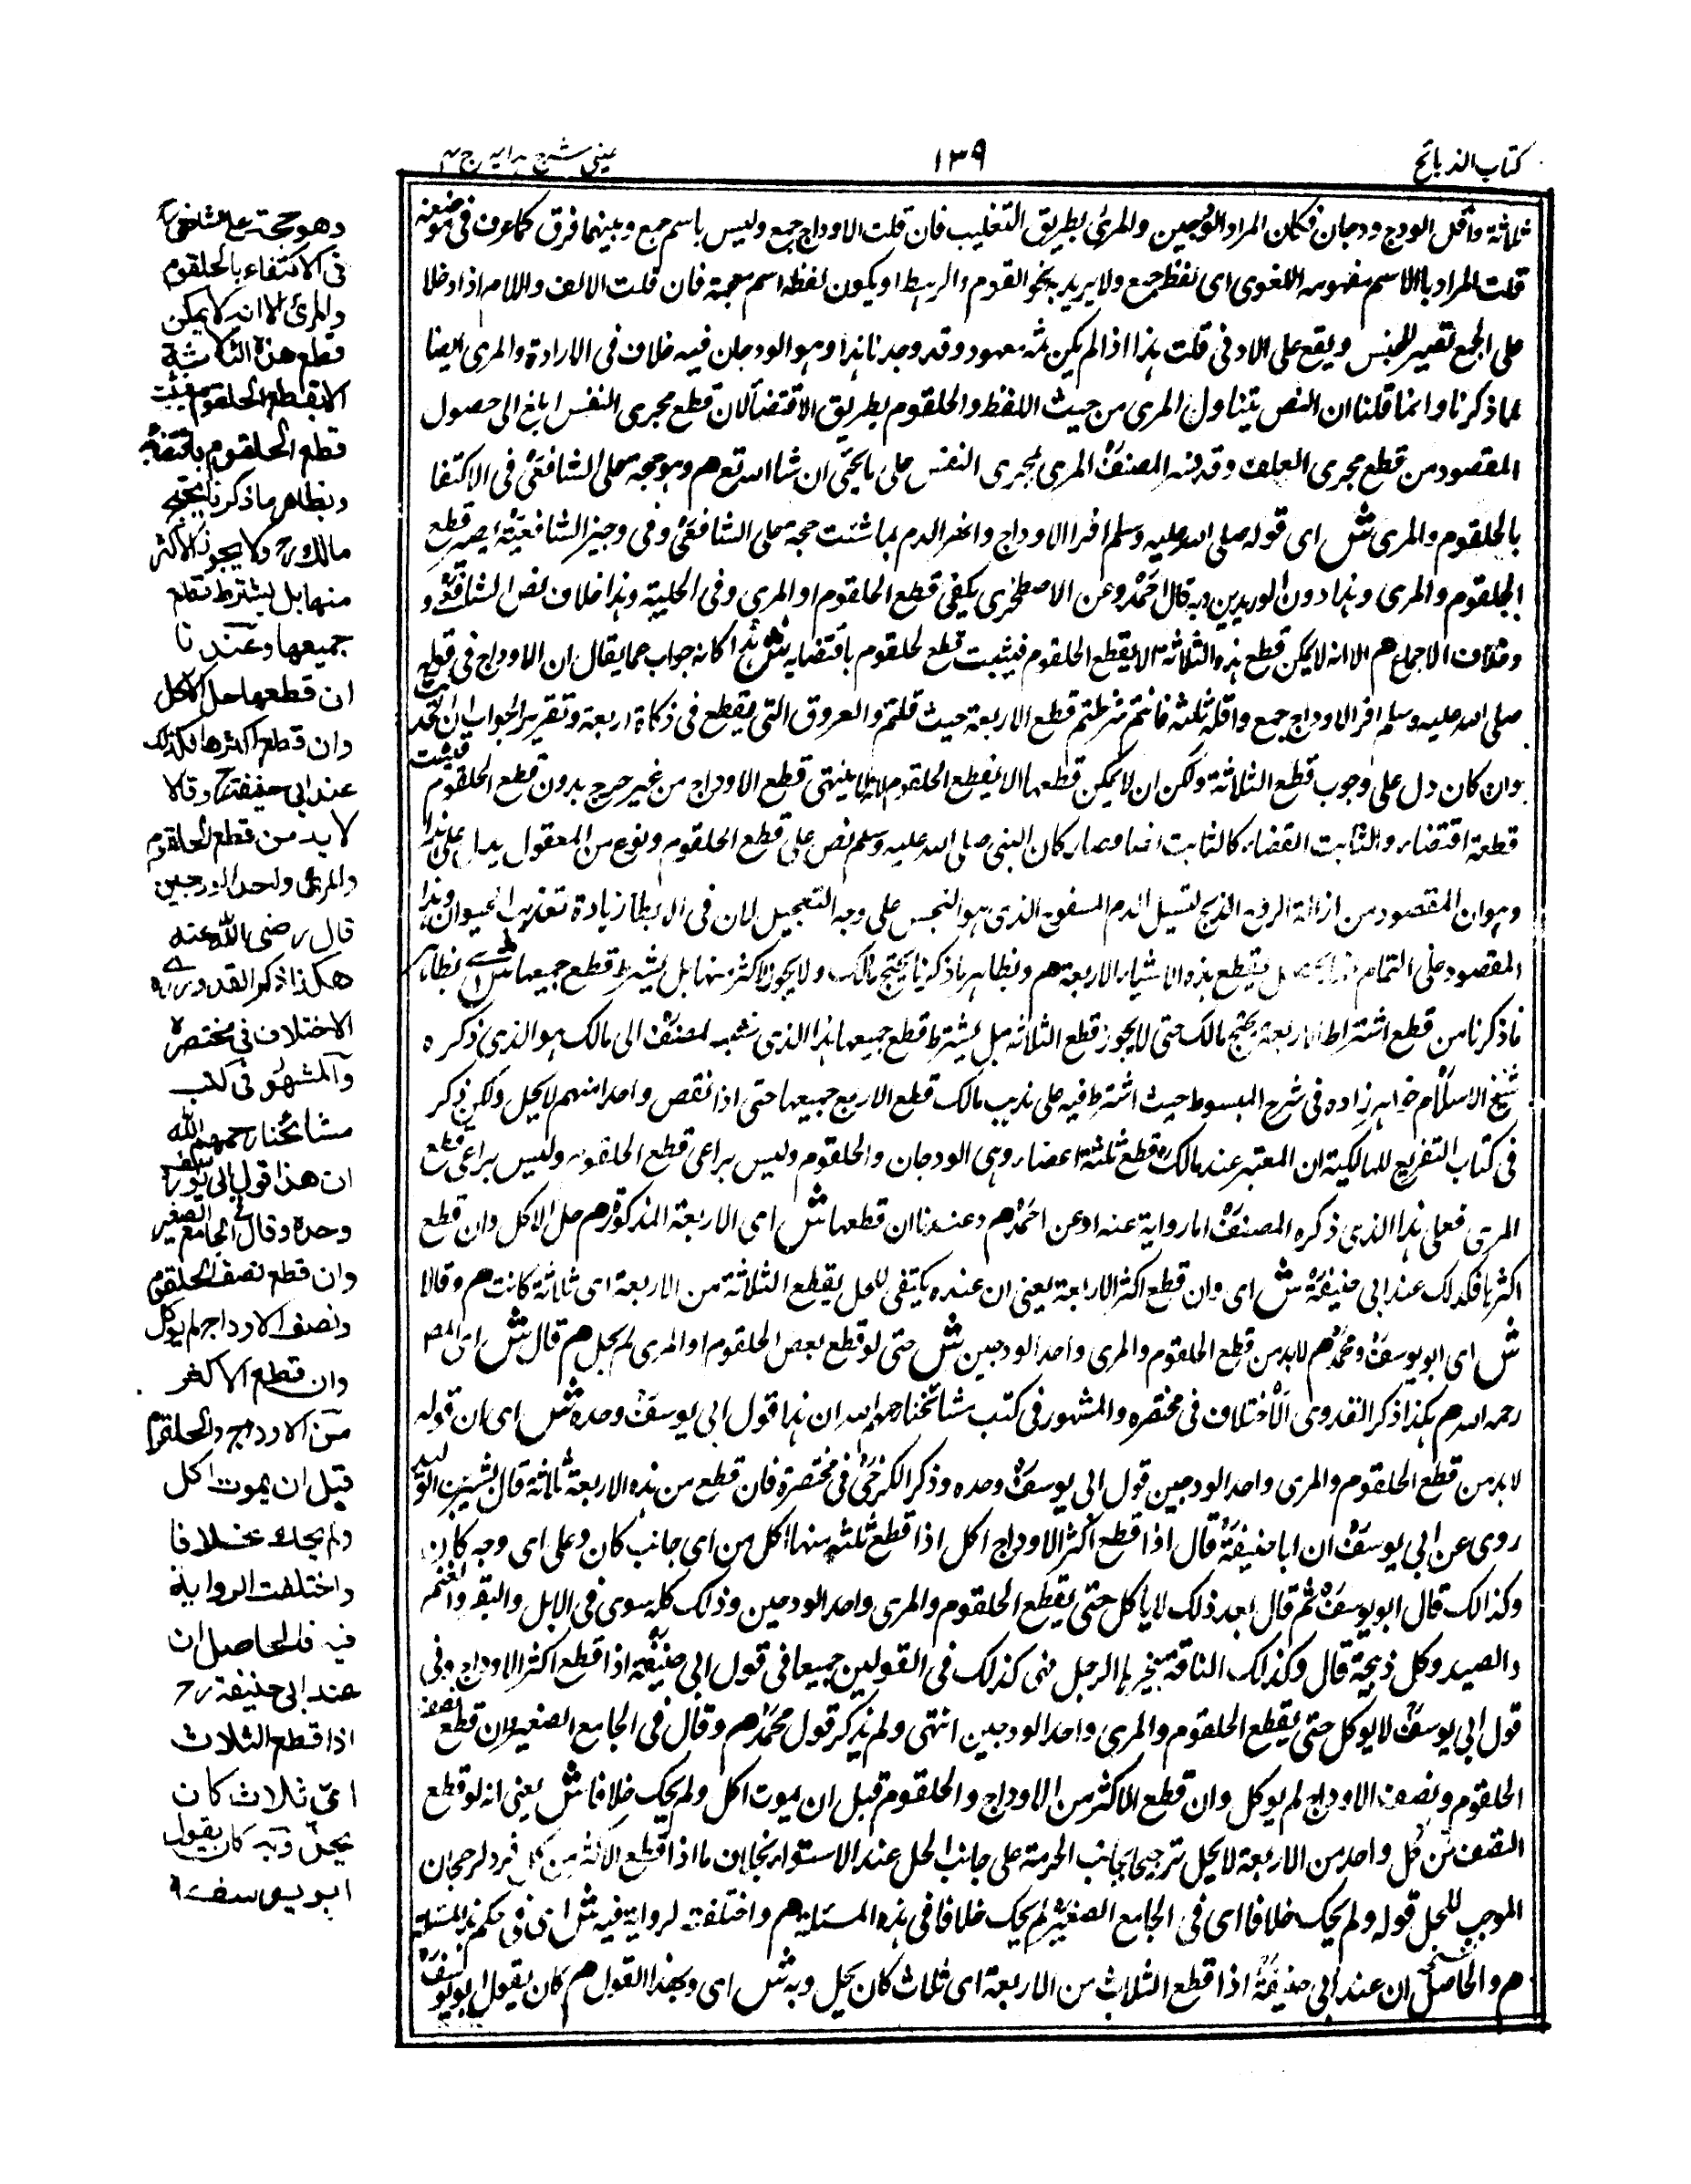 كتاب الذبائح
١٣٩
عينى شرح هدايه ج ٤
ثلاثة واقل الودج ودجان فكان المراد الودجين والمرئ بطريق التغليب فان قلت الاوداج جمع وليس باسم جمع وبينهما فرق كما عرف فى موضعه
قلت المراد بالاسم مفهومه اللغوى اى لفظ جمع ولا يريد به نحو القوم والرهط او يكون لفظه اسم معجمة فان قلت الالف واللام اذا دخلا
على الجمع تصير للجنس ويقع على الادنى قلت هذا اذا لم يكن ثمه معهود وقد وجدنا هذا وهو الودجان فيه خلاف فى الارادة والمرى ايضا
لما ذكرنا وانما قلنا ان النص يتناول المرى من حيث اللفظ والحلقوم بطريق الاقتضاء لان قطع مجرى النفس ابلغ الى حصول
المقصود من قطع مجرى العلف وقد المصنف المرى بمجرى النفس على ما يجئ ان شاء الله تع هم وهو حجة على الشافعى فى الاكتفا
بالحلقوم والمرى ش اى قوله صلى الله عليه وسلم افر الاوداج وانهر الدم بما شئت حجة على الشافعى وفى وجيز الشافعية قطع
الحلقوم والمرى وهذا دون الوريدين وبه قال احمد وعن الاصطخرى يكفى قطع الحلقوم او المرى وفى الحلية وهذا خلاف نص الشافعى و
وخلاف الاجماع هم الا انه لا يمكن قطع هذه الثلاثة الا بقطع الحلقوم فيثبت قطع الحلقوم باقتضايه ش هذا كانه جواب عما يقال ان الاوداج فى قوله
صلى الله عليه وسلم افر الاوداج جمع واقله ثلثة فانتم شرطتم قطع الاربعة حيث قلتم والعروق التى يقطع فى ذكاة اربعة وتقرير الجواب ان الحديث
وان كان دل على وجوب قطع الثلاثة ولكن ان لا يمكن قطعها الا بقطع الحلقوم لانه لا ينتهى قطع الاوداج من غير حرج بدون قطع الحلقوم فيثبت
قطعه اقتضاء والثابت اقتضاء كالثابت نصا وصار كان النبى صلى الله عليه وسلم نص على قطع الحلقوم ونوع من المعقول يدل على هذا
وهو ان المقصود من ازالة الروح الذبح لتسيل الدم المسفوح الذى هو النجس على وجه التعجيل لان فى الابطاء زيادة تعذيب الحيوان وهذا
المقصود على التمام انما يحصل بقطع هذه الاشياء الاربعة هم وبظاهر ما ذكرنا يحتج مالك ولا يجوز الاكثر منها بل يشترط قطع جميعها ش اى بظاهر
ما ذكرنا من قطع اشتراط الاربعة يحتج مالك حتى لا يجوز قطع الثلاثة بل يشترط قطع جميعها هذا الذى نسبه المصنف الى مالك هو الذى ذكره
شيخ الاسلام خواهر زاده فى شرح المبسوط حيث اشترط فيه على مذهب مالك قطع الاربع جميعها حتى اذا نقص واحدا منهم لا يحل ولكن ذكر
فى كتاب التفريع للمالكية ان المعتبر عند مالك قطع ثلثة اعضاء وهى الودجان والحلقوم وليس يراعى قطع الحلقوم وليس يراعى قطع
المرى فعلى هذا الذى ذكره المصنف اما رواية عنه او عن احمد هم وعندنا ان قطعها ش اى الاربعة المذكورة هم حل الاكل وان قطع
اكثرها فكذلك عند ابى حنيفة ش اى وان قطع اكثر الاربعة يعنى ان عنده يكتفى للحل بقطع الثلاثة من الاربعة اى ثلاثة كانت هم وقالا
ش اى ابو يوسف ومحمد هم لا بد من قطع الحلقوم والمرى واحد الودجين ش حتى لو قطع بعض الحلقوم او المرى لم يحل هم قال ش اى المص
رحمه الله هم هكذا ذكر القدورى الاختلاف فى مختصره والمشهور فى كتب مشائخنا رحمهم الله ان هذا قول ابى يوسف وحده ش اى ان قوله
لا بد من قطع الحلقوم والمرى واحد الودجين قول ابى يوسف وحده وذكر الكرخى فى مختصره فان قطع من هذه الاربعة ثلاثة قال بشر بن الوليد
روى عن ابى يوسف ان ابا حنيفة قال اذا قطع اكثر الاوداج اكل اذا قطع ثلثه منها اكل من اى جانب كان وعلى اى وجه كان
وكذالك قال ابو يوسف ثم قال بعد ذلك لا ياكل حتى يقطع الحلقوم والمرى واحد الودجين وذلك كله سوى فى الابل والبقر والغنم
والصيد وكل ذبيحة قال وكذلك الناقة ينحرها الرجل فهى كذلك فى القولين جميعا فى قول ابى حنيفة اذا قطع اكثر الاوداج وفى
قول ابى يوسف لا يوكل حتى يقطع الحلقوم والمرى واحد الودجين انتهى ولم يذكر قول محمد هم وقال فى الجامع الصغير وان قطع نصف
الحلقوم ونصف الاوداج لم يوكل وان قطع الاكثر من الاوداج والحلقوم قبل ان يموت اكل ولم يحك خلافا ش يعنى انه لو قطع
النصف من كل واحد من الاربعة لا يحل ترجيحا لجانب الحرمة على جانب الحل عند الاستواء بخلاف ما اذا قطع الاكثر من كل فرد لرجحان
الموجب للحل قوله ولم يحك خلافا اى فى الجامع الصغير لم يحك خلافا فى هذه المسئلة هم واختلفت الرواية فيه ش اى فى حكم هذا المسئلة
هم والحاصل ان عند ابى حنيفة اذا قطع الثلاث من الاربعة اى ثلاث كان يحل وبه ش اى وبهذا القول هم كان يقول ابو يوسف
وهو حجة على الشافعى
فى الاكتفاء بالحلقوم
والمرئ الا انه لا يمكن
قطع هذه الثلاثة
الا بقطع الحلقوم فيثبت
قطع الحلقوم باقتضائه
وبظاهر ما ذكرنا يحتج
مالك رح ولا يجوز الاكثر
منها بل يشترط قطع
جميعها وعندنا
ان قطعها حل الاكل
وان قطع اكثرها فكذلك
عند ابى حنيفة رح وقالا
لا بد من قطع الحلقوم
والمرئ واحد الودجين
قال رضى الله عنه
هكذا ذكر القدورى
الاختلاف فى مختصره
والمشهور فى كتب
مشائخنا رحمهم الله
ان هذا قول ابى يوسف
وحده وقال فى الجامع الصغير
وان قطع نصف الحلقوم
ونصف الاوداج لم يوكل
وان قطع الاكثر
من الاوداج والحلقوم
قبل ان يموت اكل
ولم يحك خلافا
واختلفت الرواية
فيه فالحاصل ان
عند ابى حنيفة رح
اذا قطع الثلاث
اى ثلاث كان
يحل وبه كان يقول
ابو يوسف